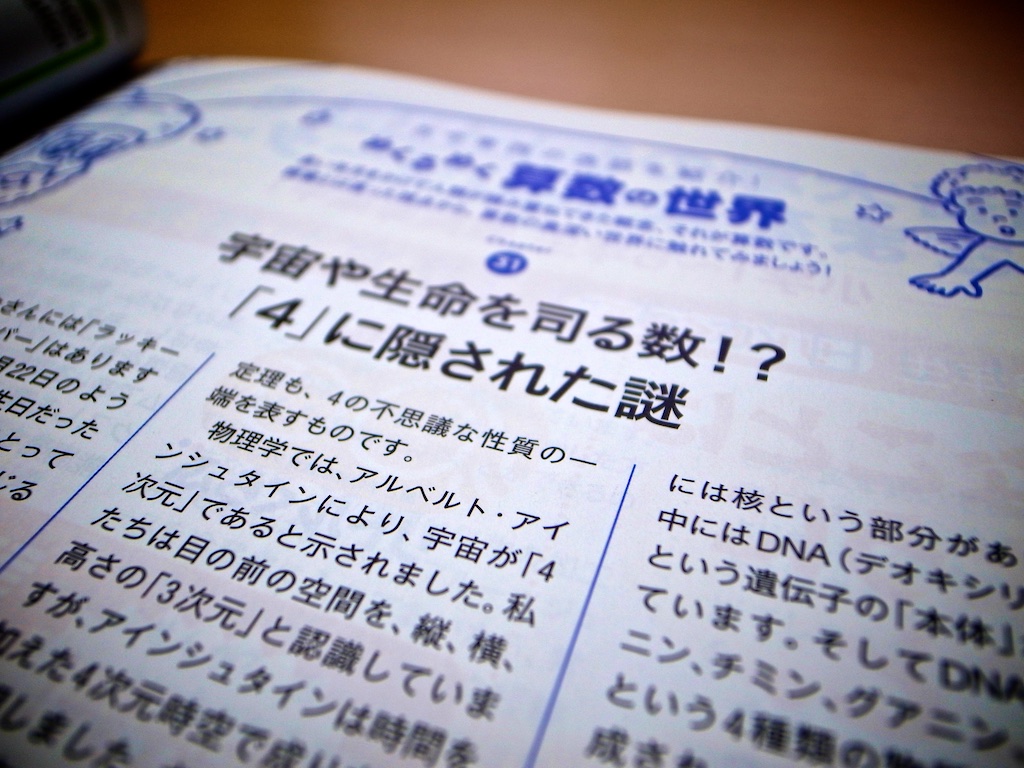 めくるめく算数の世界
Chapter
31
宇宙や生命を司る数！？
「4」に隠された謎
さんには「ラッキー
バー」はあります
月22日のよう
生日だった
とって
じる
定理も、4の不思議な性質の一
端を表すものです。
物理学では、アルベルト・アイ
ンシュタインにより、宇宙が「4
次元」であると示されました。私
たちは目の前の空間を、縦、横、
高さの「3次元」と認識していま
すが、アインシュタインは時間を
加えた4次元時空で成り
しました。
には核という部分があ
中にはDNA（デオキシリ
という遺伝子の「本体」
ています。そしてDNA
ニン、チミン、グアニン、
という4種類の物
成され